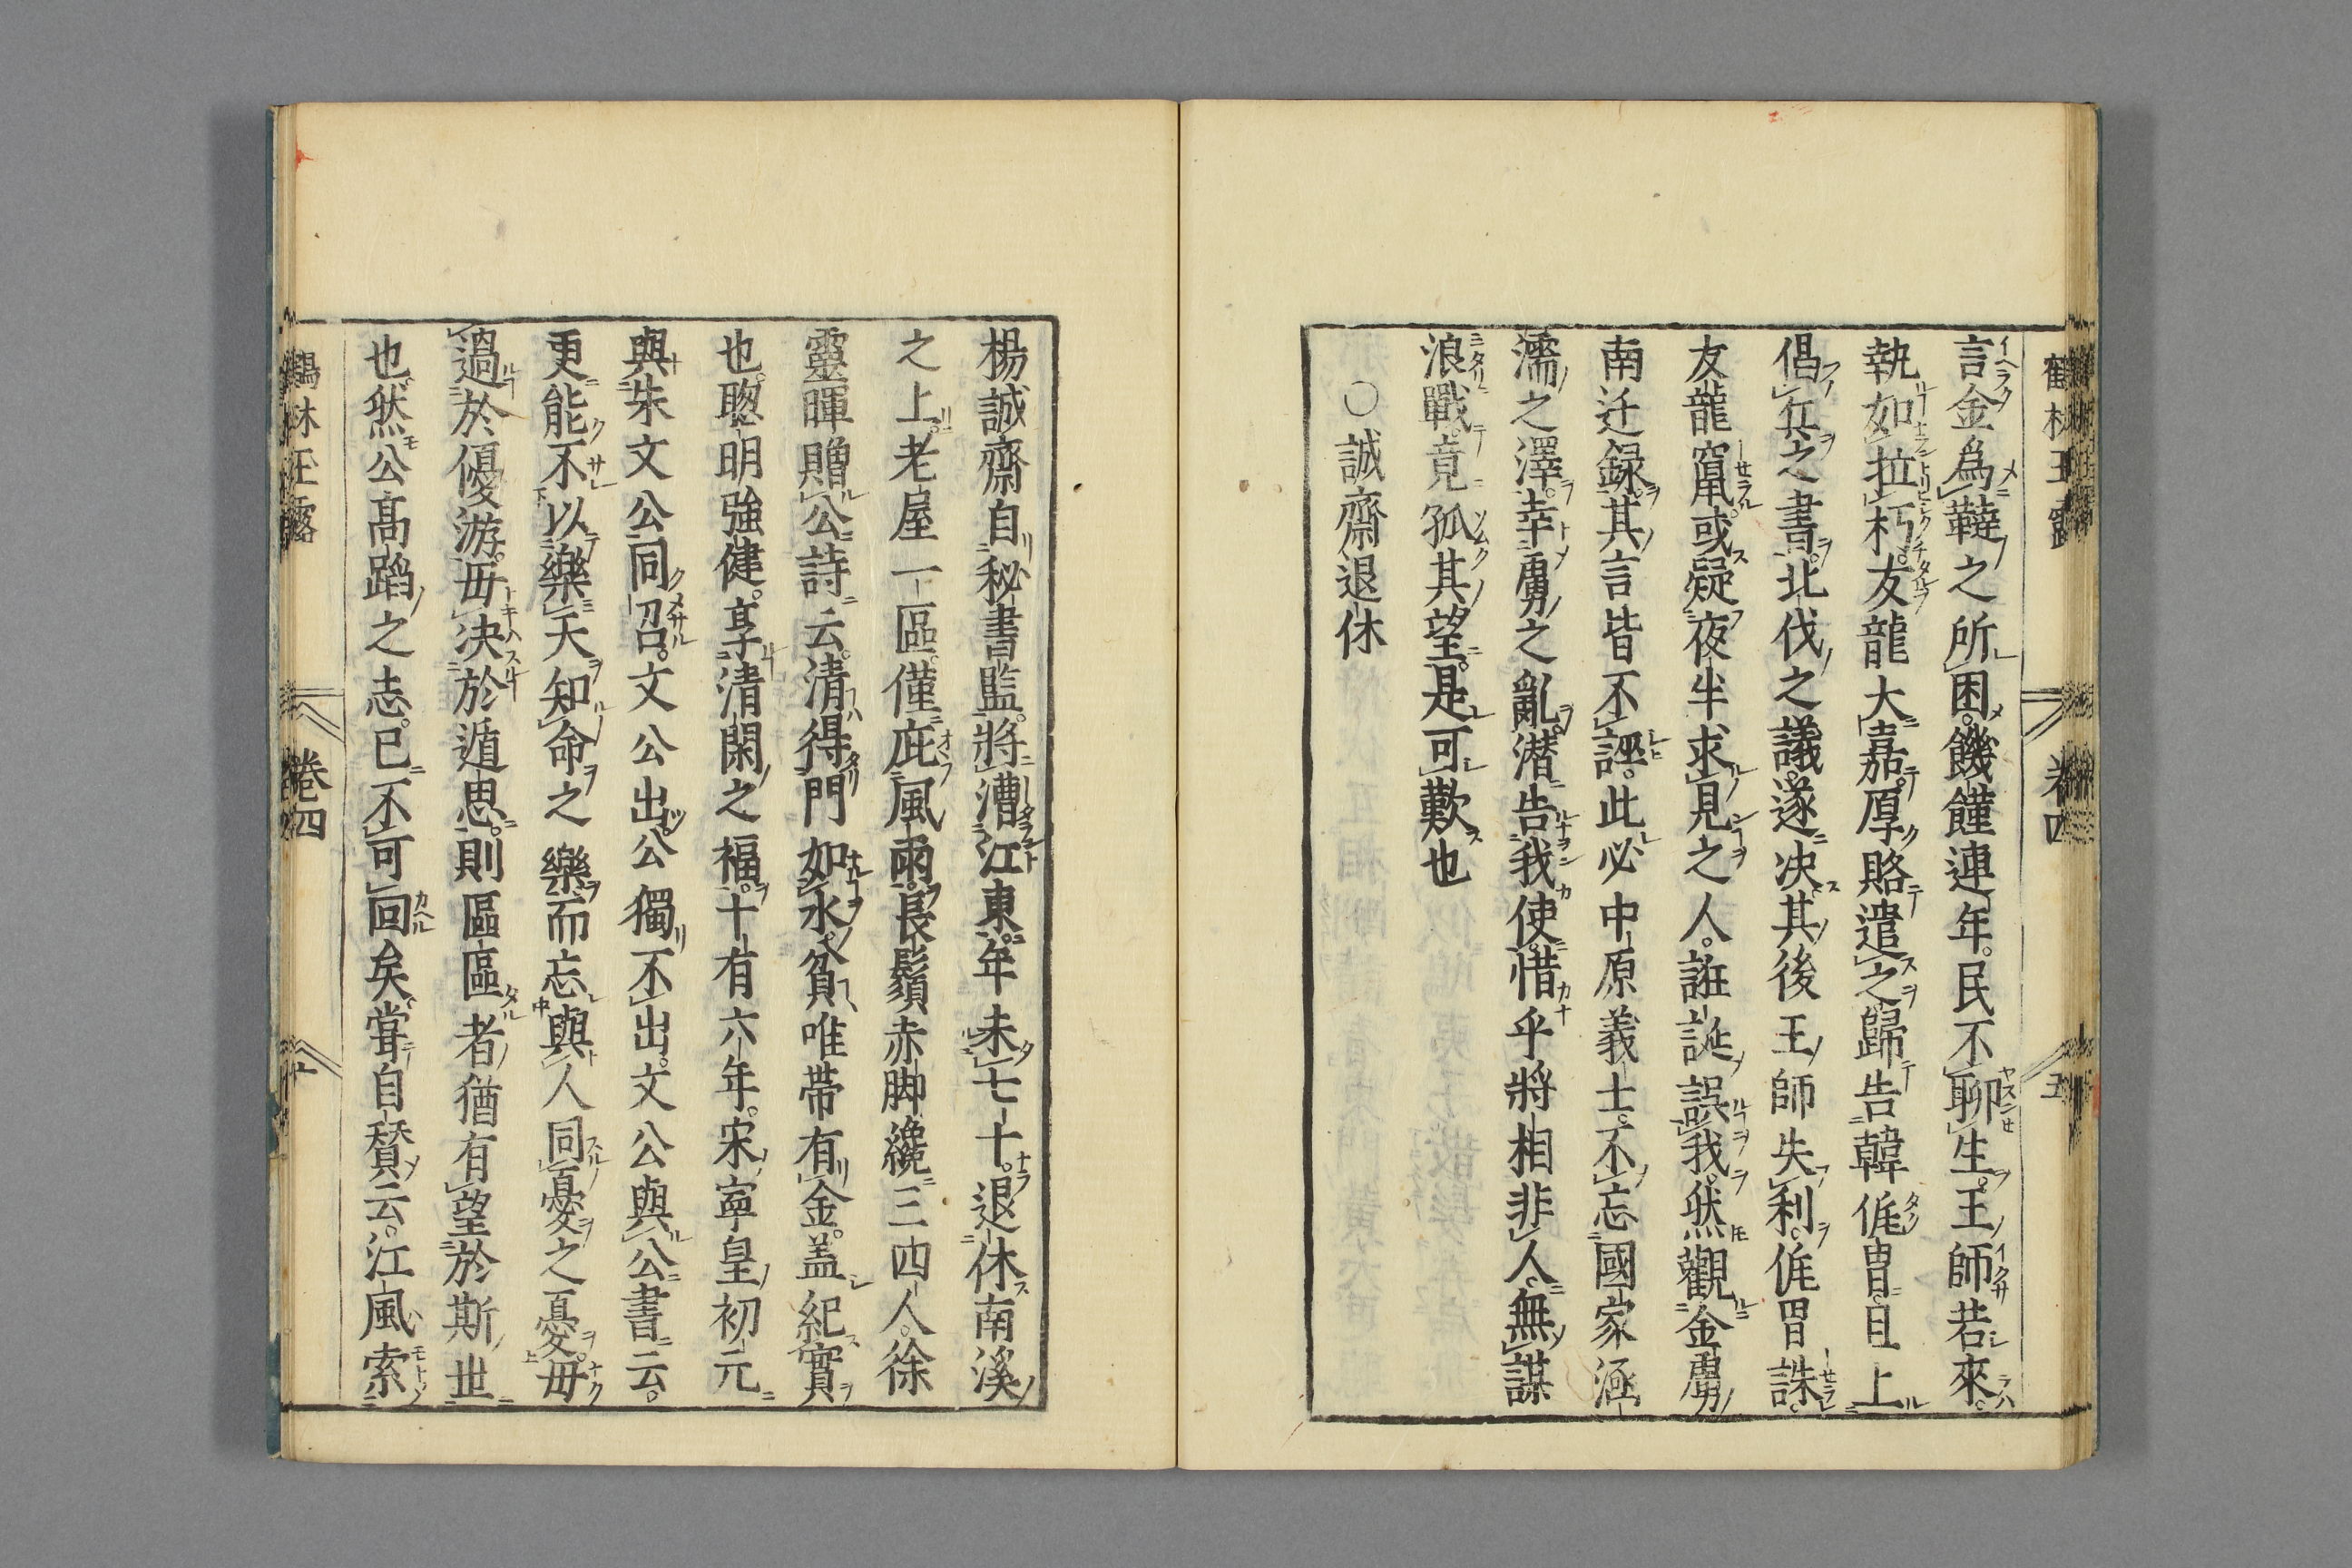 言金為韃之所困。饑饉連年。民不聊生。王師若來。
執如拉朽。友龍大嘉。厚賂遣之歸告韓侂冑。且上
倡兵之書。北伐之議遂决。其後王師失利。侂冑誅。
友龍竄。或疑夜半求見之人。誑誕誤我。然觀金虜
南迁録。其言皆不誣。此必中原義士。不忘國家涵
濡之澤。幸虜之亂。潜告我使。惜乎將相非人。無謀
浪戰。竟孤其望。是可歎也
○誠齋退休
楊誠齋自秘書監。將漕江東。年未七十。退休南溪
之上。老屋一區。僅庇風雨。長鬚赤脚纔三四人。徐
靈暉贈公詩云。清得門如水。貧唯帯有金。盖紀實
也。聦明強健。享清閑之福。十有六年。宋寧皇初元
與朱文公同召。文公出。公獨不出。文公與公書云。
更能不以樂天知命之樂。而忘與人同憂之憂。毋
過於優游。毋决於遁思。則區區者猶有望於斯世
也。然公髙蹈之志。已不可回矣。甞自賛云。江風索
鶴林玉露
卷四
五
鶴林玉露
卷四